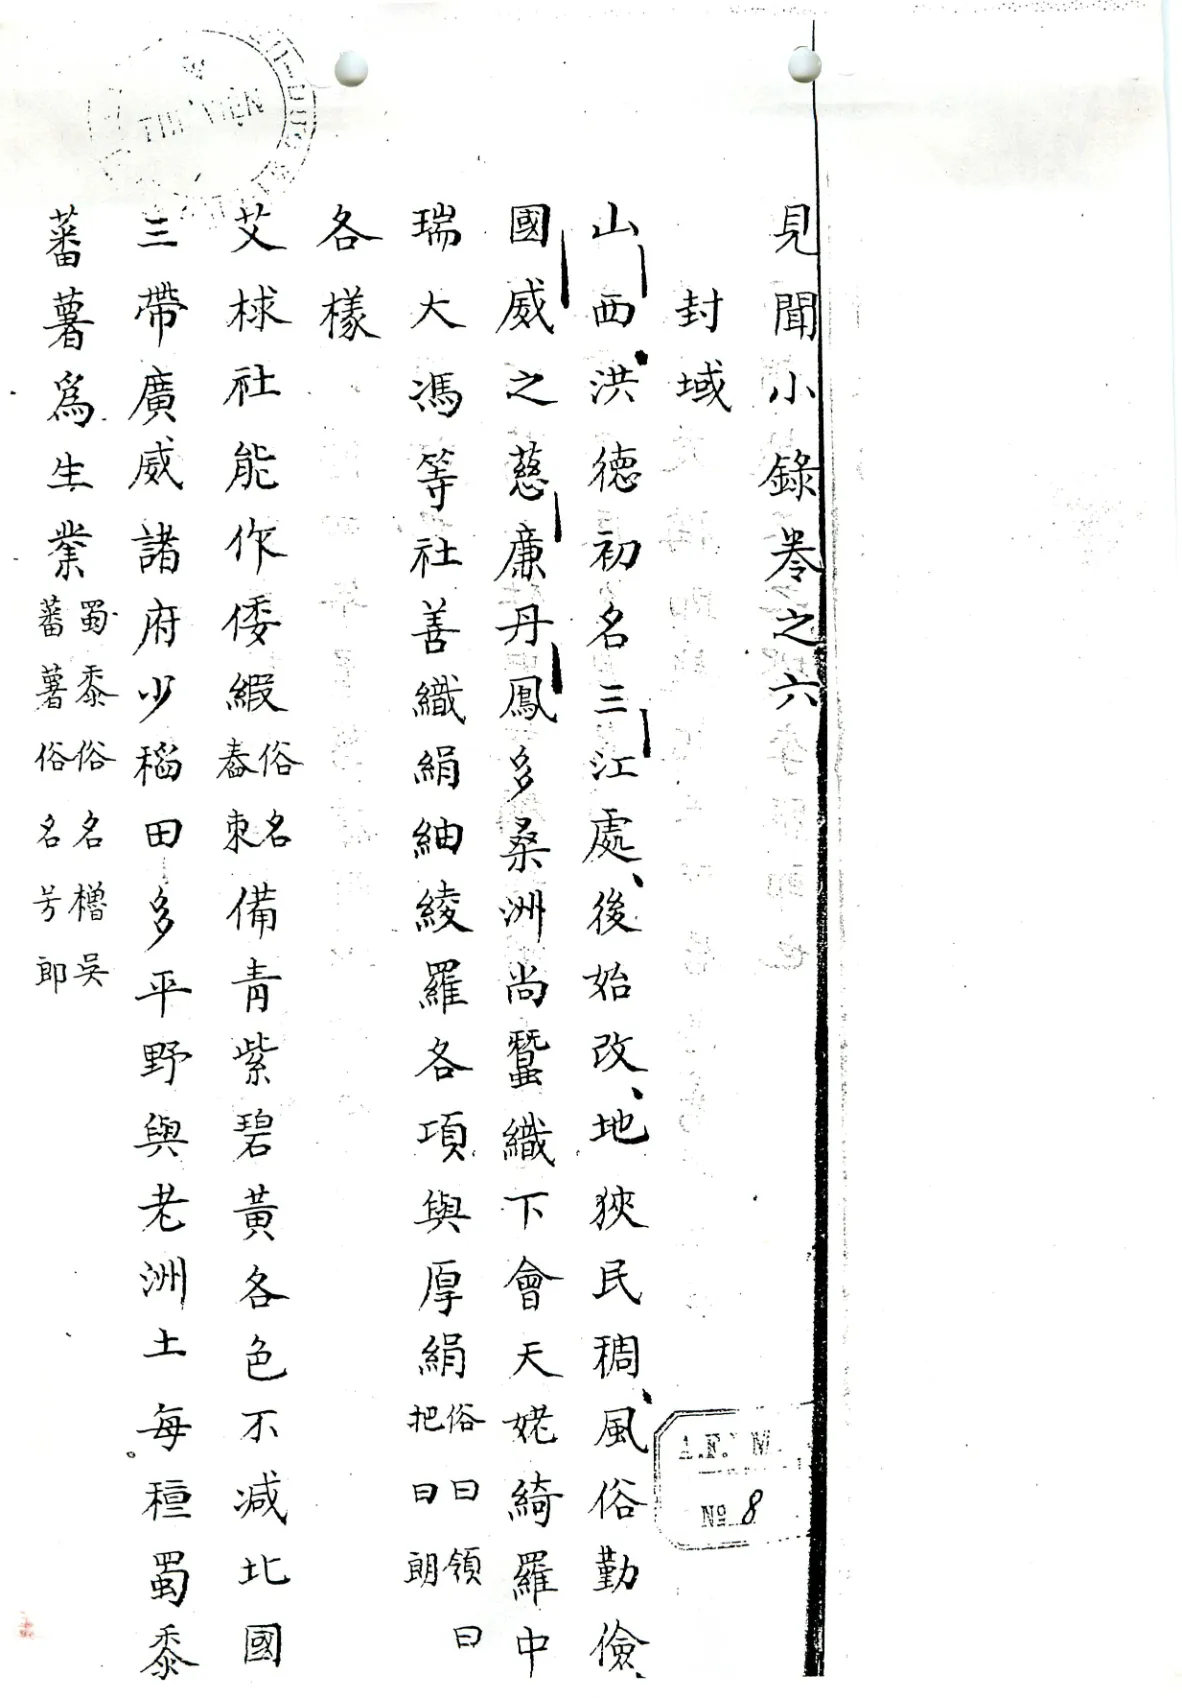 見聞小錄卷之六
封域
山西洪德初名三江處後始改地狹民稠風俗勤儉
國威之慈廉丹鳳多桑洲尚蠶織下會天姥綺羅中
瑞大馮等社善織絹紬綾羅各項與厚絹俗曰領曰把曰朗
各樣
艾梂社能作倭緞俗名𦾔朿備青紫碧黃各色不減北國
三帶廣威諸府少稻田多平野與老洲土每種蜀黍
蕃薯爲生業蜀黍俗名櫓吳蕃薯俗名芳郎
THƯ VIỆN
A.F. M
Nº 8